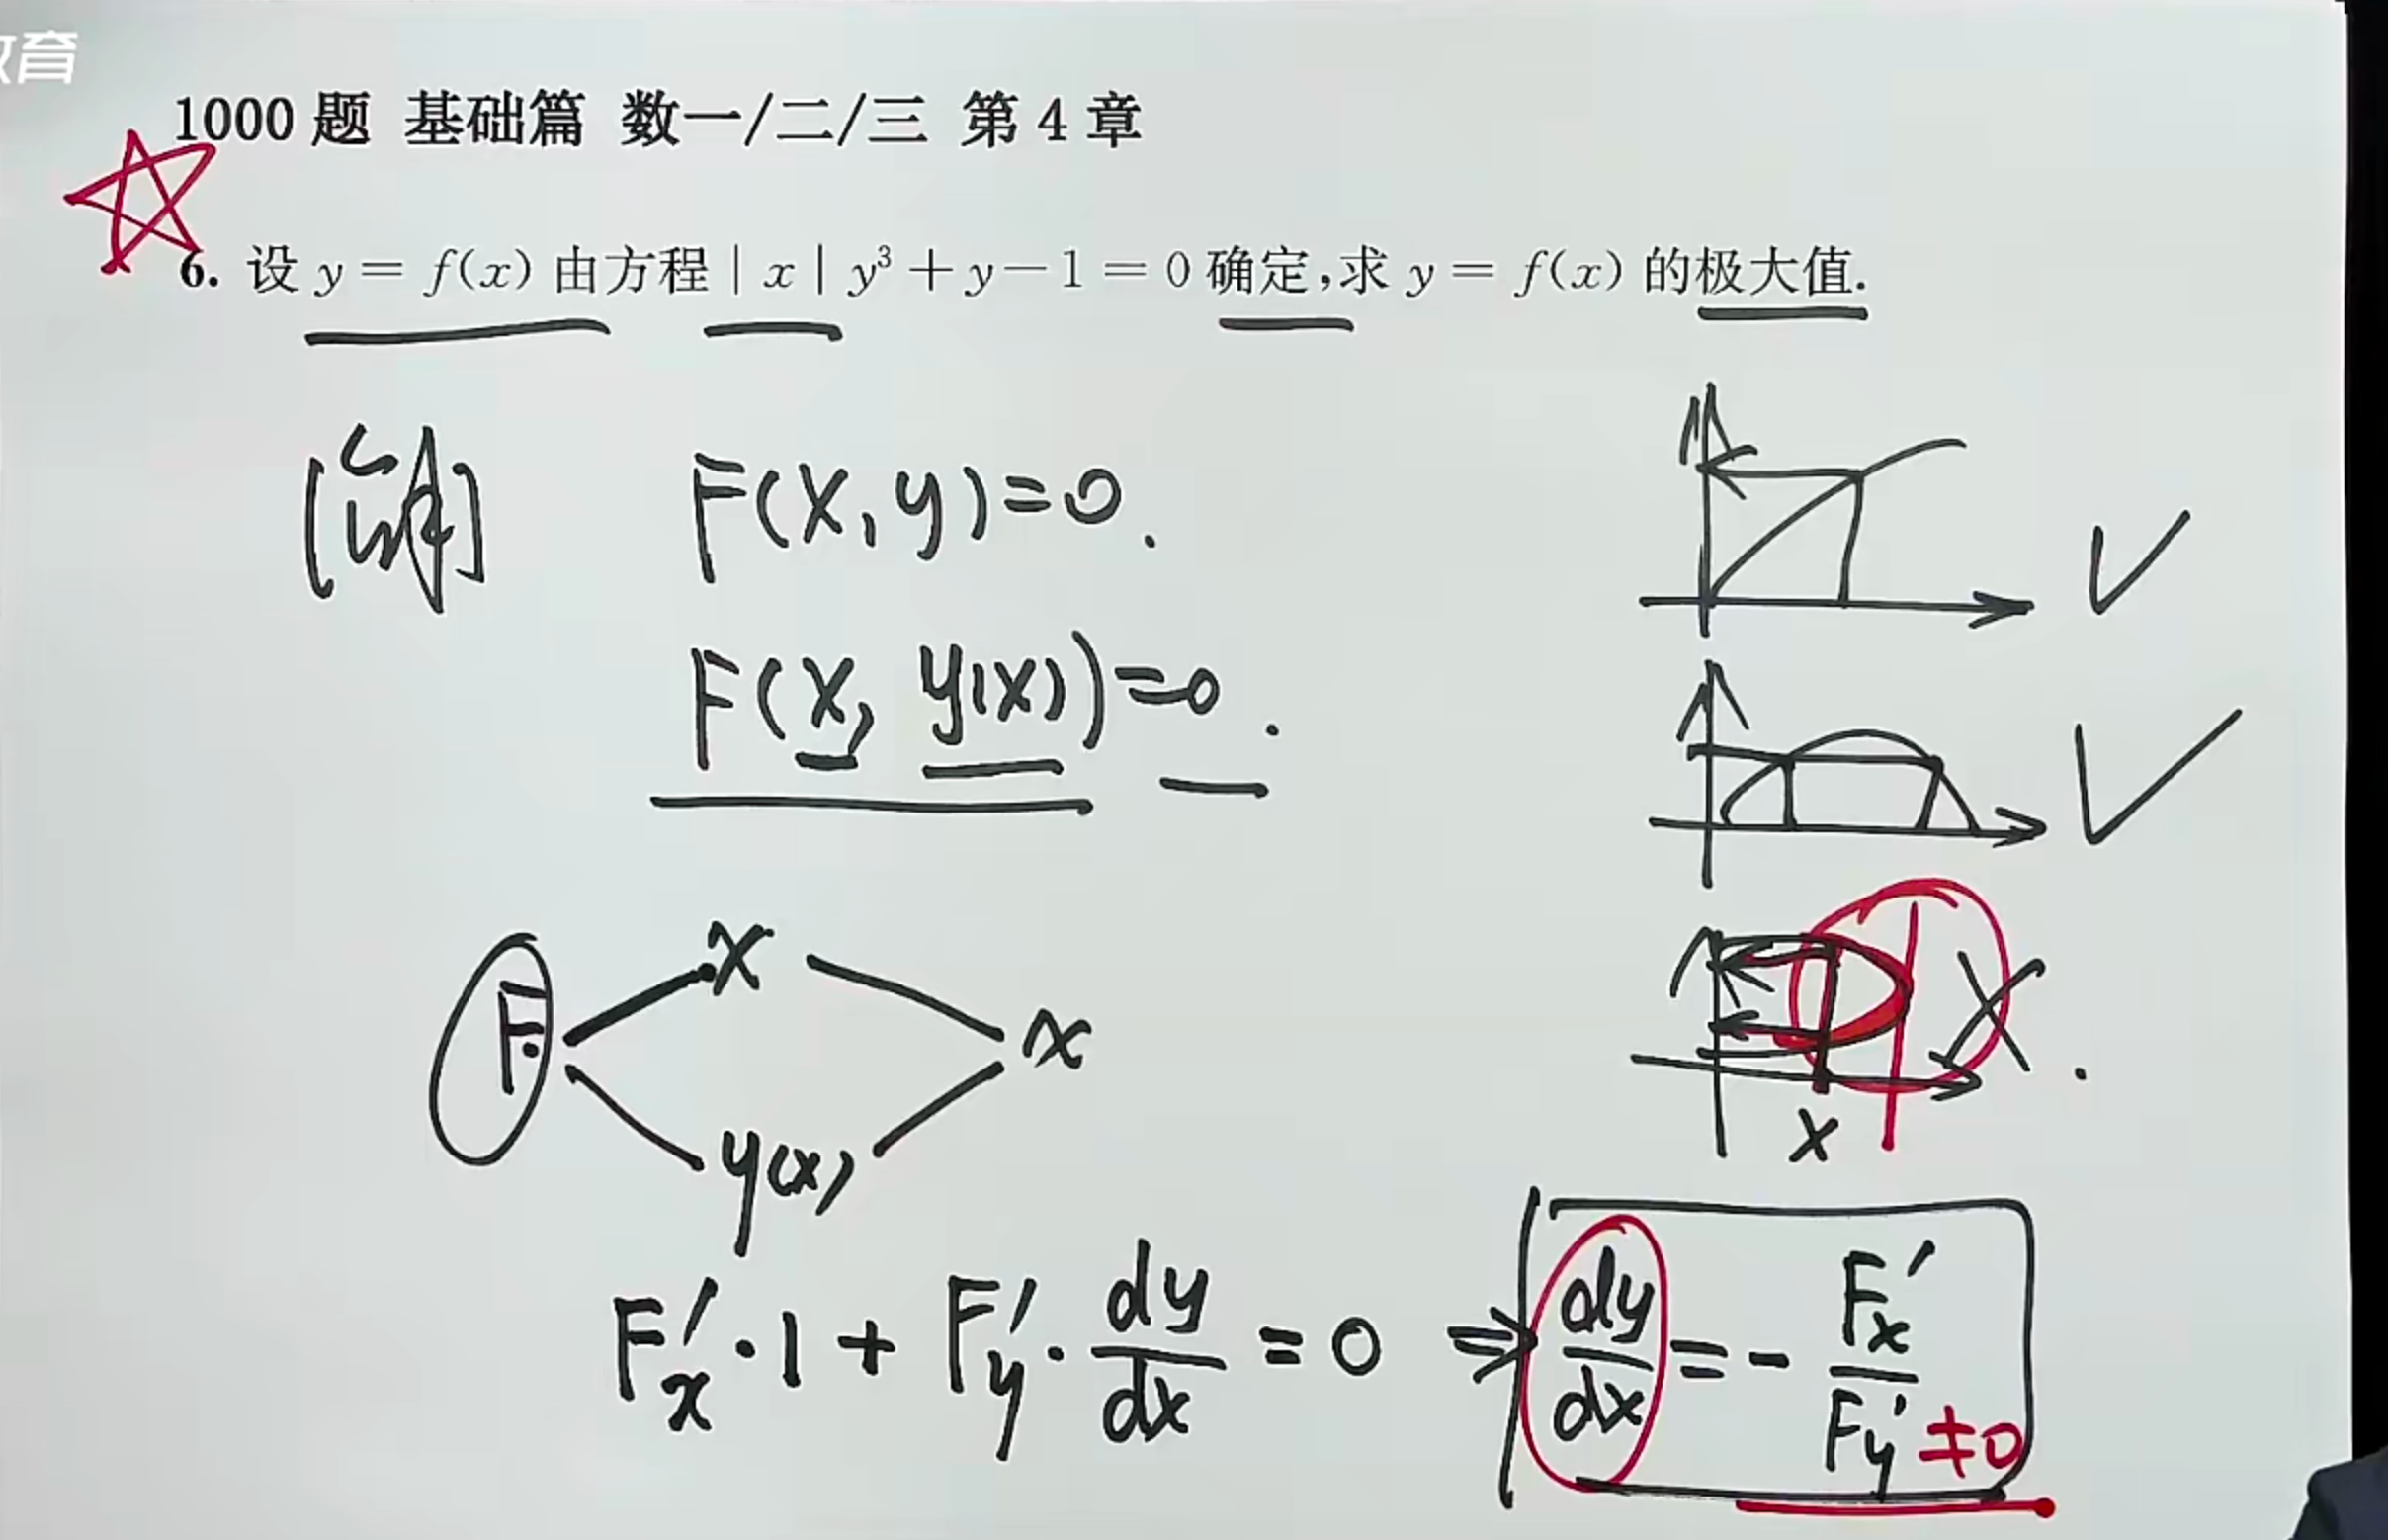 教育
1000题 基础篇 数一/二/三 第4章
6. 设 y = f(x) 由方程 | x | y³ + y − 1 = 0 确定,求 y = f(x) 的极大值.
[解]
F(x, y)=0.
F(x, y(x))=0.
F x x
y(x)
x
F'x · 1 + F'y · dy/dx = 0 ⇒ dy/dx = − F'x/F'y ≠0